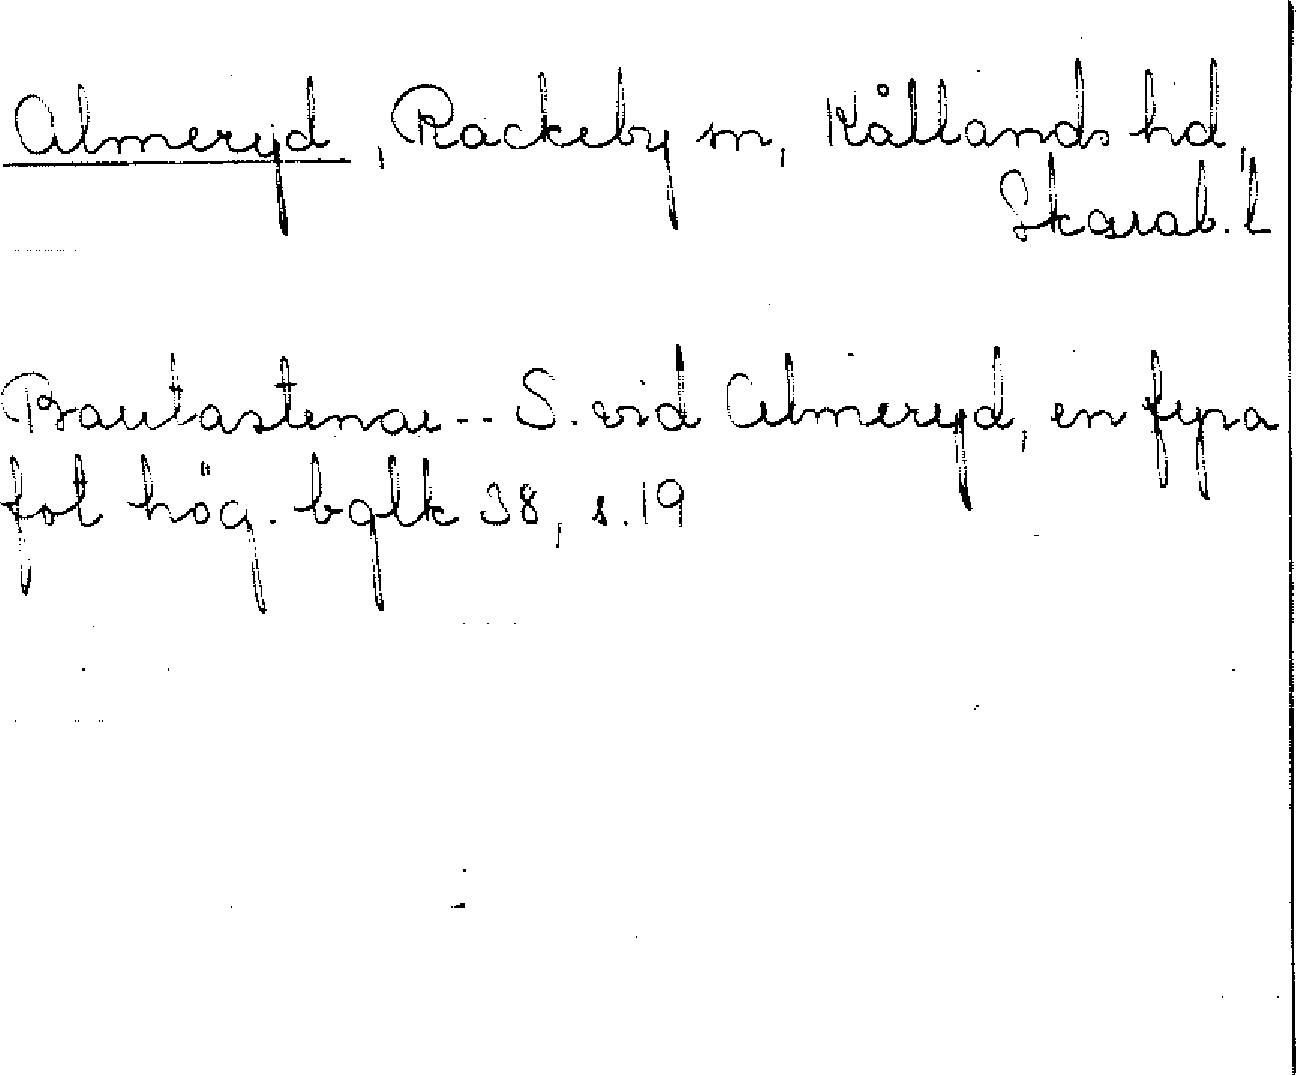 Almeryd, Rackeby sn, Kållands hd,
Skarab. l
Bautastenar -- S. vid Almeryd, en fyra
fot hög. bglk 38, s. 19